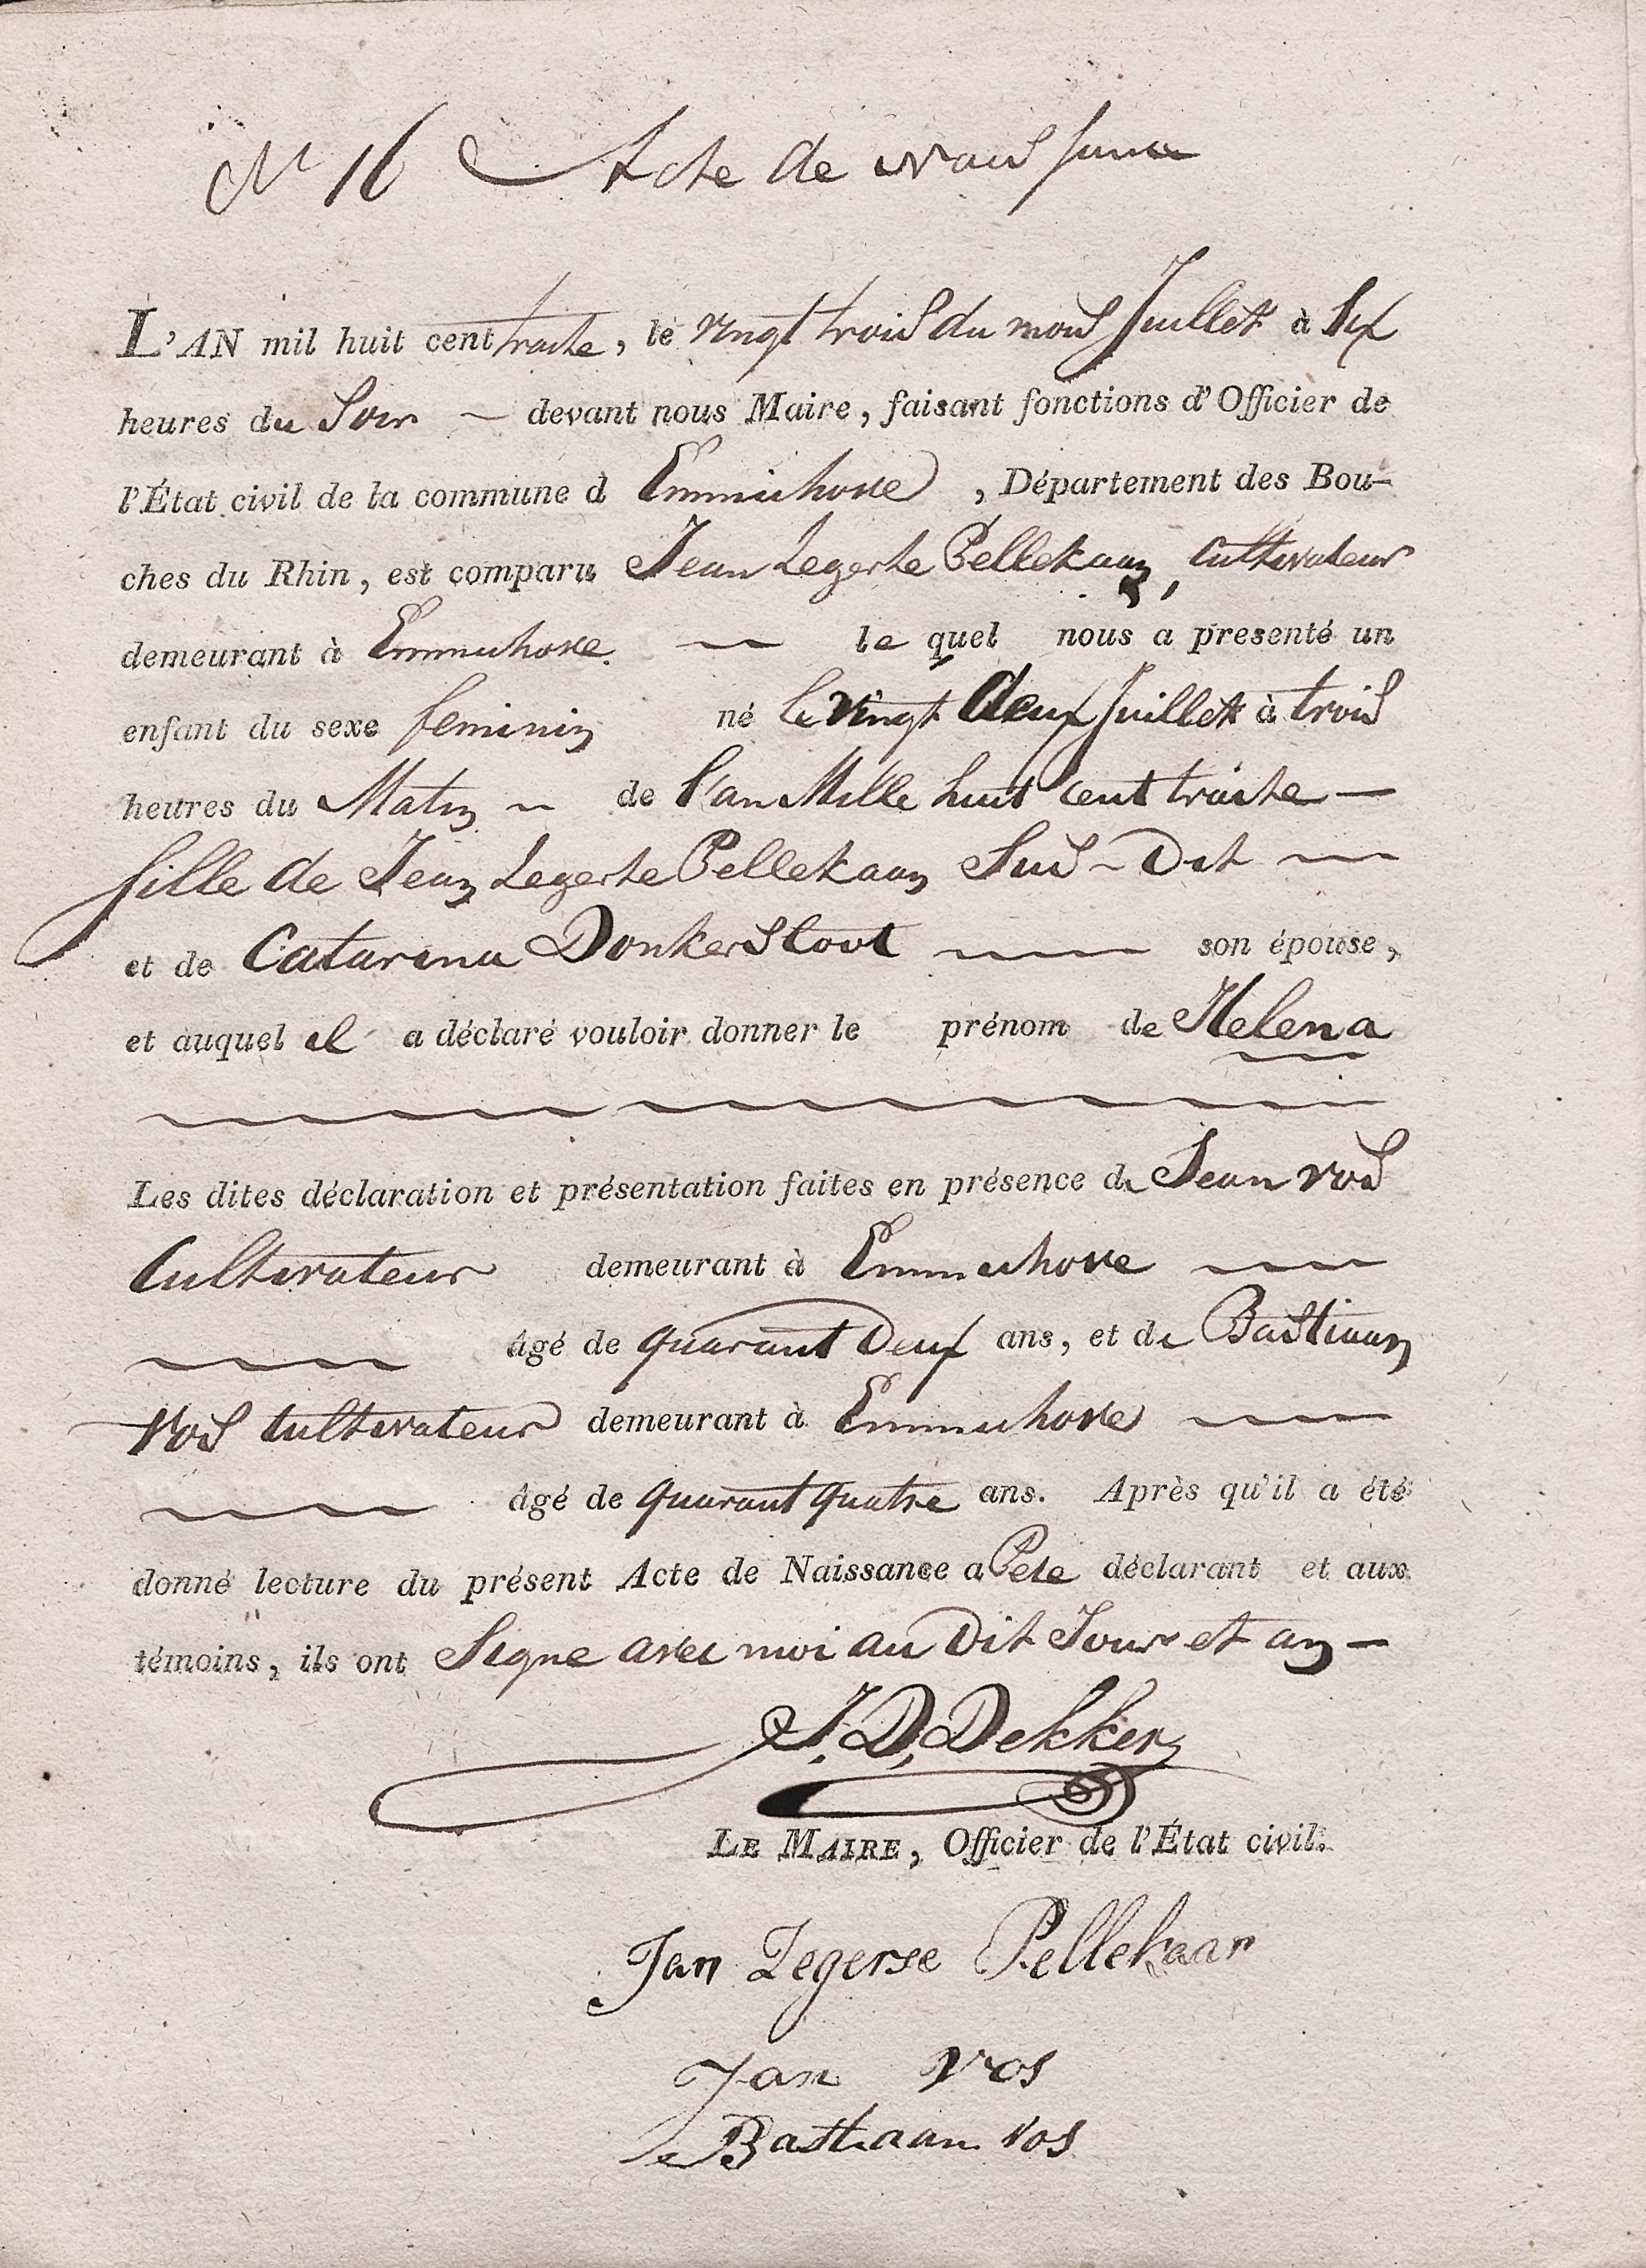 No 16 Acte de Naissance
L'AN mil huit cent traite, le vingt trois du mois Juillett à Six
heures du Soir — devant nous Maire, faisant fonctions d'Officier de
l'État civil de la commune d Emmichove, Département des Bou-
ches du Rhin, est comparu Jean Zegerse Pellekaan, Cultivateur
demeurant à Emmichove. — le quel nous a presenté un
enfant du sexe feminin né le vingt deux Juillett à trois
heures du Matin — de l'an Mille huit Cent traite —
fille de Jean Zegerse Pellekaan Sus-Dit —
et de Catarina Donkersloot — son épouse,
et auquel il a déclaré vouloir donner le prénom de Helena
Les dites déclaration et présentation faites en présence de Jean Vos
Cultivateur demeurant à Emmichove —
— âgé de quarant Deux ans, et de Bastiaan
Vos Cultivateur demeurant à Emmichove —
— âgé de quarant quatre ans. Après qu'il a été
donné lecture du présent Acte de Naissance a Pere déclarant et aux
témoins, ils ont Signe avec moi au Dit Jour et an —
J. D. Dekker
LE MAIRE, Officier de l'État civil.
Jan Zegerse Pellekaan
Jan Vos
Bastiaan Vos